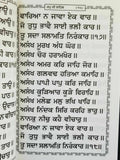 ਵਾਰਿਆ ਨ ਜਾਵਾ ਏਕ ਵਾਰ ॥
ਜੋ ਤੁਧੁ ਭਾਵੈ ਸਾਈ ਭਲੀ ਕਾਰ ॥
ਤੂ ਸਦਾ ਸਲਾਮਤਿ ਨਿਰੰਕਾਰ
ਅਸੰਖ ਮੂਰਖ ਅੰਧ ਘੋਰ ॥
ਅਸੰਖ ਚੋਰ ਹਰਾਮਖੋਰ ॥
ਅਸੰਖ ਅਮਰ ਕਰਿ ਜਾਹਿ ਜੋਰ ॥
ਅਸੰਖ ਗਲਵਢ ਹਤਿਆ ਕਮਾਹਿ ॥
ਅਸੰਖ ਪਾਪੀ ਪਾਪੁ ਕਰਿ ਜਾਹਿ ॥
ਅਸੰਖ ਕੂੜਿਆਰ ਕੂੜੇ ਫਿਰਾਹਿ ॥
ਅਸੰਖ ਮਲੇਛ ਮਲੁ ਭਖਿ ਖਾਹਿ ॥
ਅਸੰਖ ਨਿੰਦਕ ਸਿਰਿ ਕਰਹਿ ਭਾਰੁ ॥
ਨਾਨਕੁ ਨੀਚੁ ਕਹੈ ਵੀਚਾਰੁ ॥
ਵਾਰਿਆ ਨ ਜਾਵਾ ਏਕ ਵਾਰ ॥
ਜੋ ਤੁਧੁ ਭਾਵੈ ਸਾਈ ਭਲੀ ਕਾਰ ॥
ਤੂ ਸਦਾ ਸਲਾਮਤਿ ਨਿਰੰਕਾਰ ॥੧੮॥